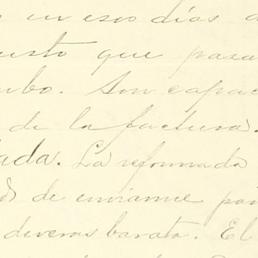 en esos dias
usto que para
mbo. Son capac
de la factura.
ada. La reformada
os de enviarme por
deveras barata. El